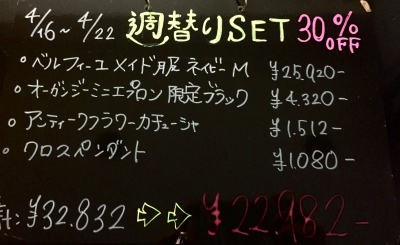 4/16~4/22 週替りSET 30% OFF
・ベルフィーユ メイド服 ネイビー M ¥25.920-
・オーガンジーミニエプロン 限定ブラック ¥4.320-
・アンティークフラワーカチューシャ ¥1.512-
・クロスペンダント ¥1.080-
計:¥32.832 ⇨⇨ ¥22.982-